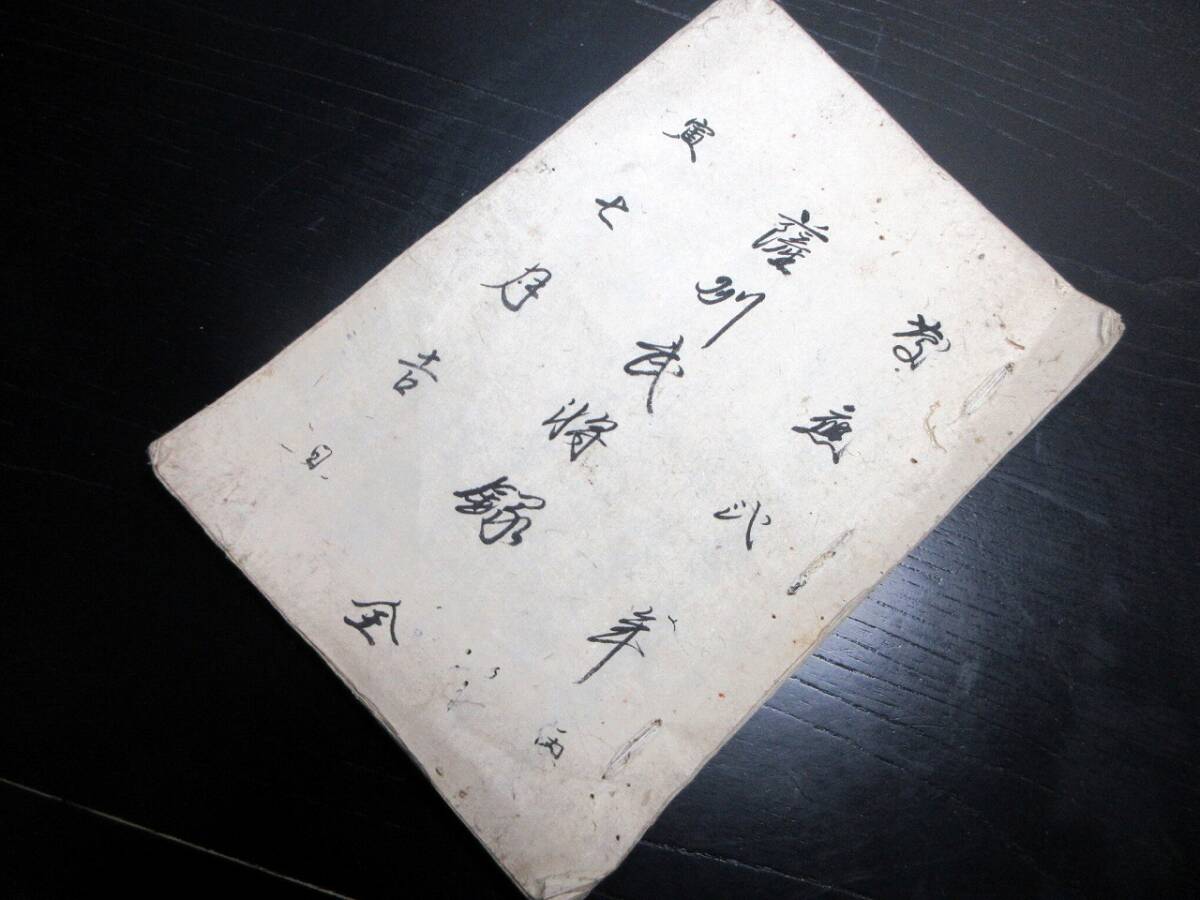 慶應弐年丙
薩州武将録 全
寅七月吉日